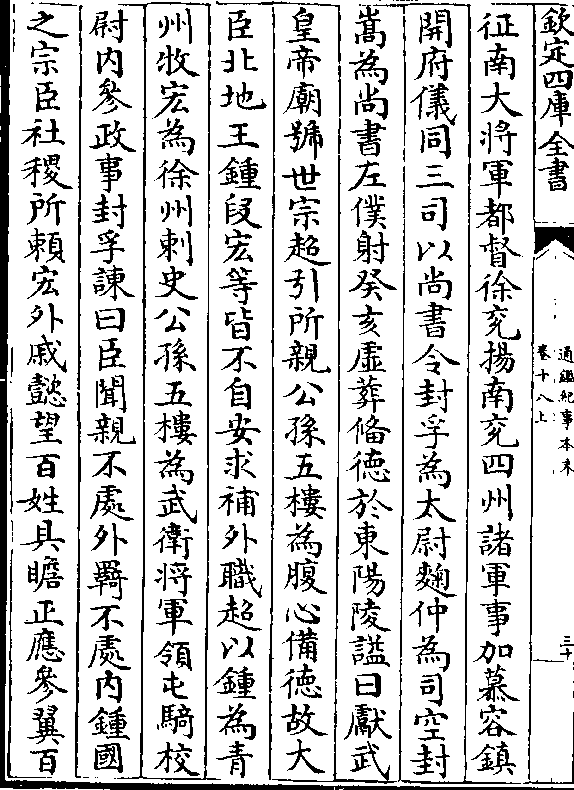 欽定四庫全書
通鑑紀事本末
卷十八上
三十
征南大將軍都督徐兗揚南兗四州諸軍事加慕容鎮
開府儀同三司以尚書令封孚為太尉麴仲為司空封
嵩為尚書左僕射癸亥虛葬備德於東陽陵諡曰獻武
皇帝廟號世宗超引所親公孫五樓為腹心備德故大
臣北地王鍾段宏等皆不自安求補外職超以鍾為青
州牧宏為徐州刺史公孫五樓為武衛將軍領屯騎校
尉內參政事封孚諫曰臣聞親不處外羈不處內鍾國
之宗臣社稷所賴宏外戚懿望百姓具瞻正應參翼百